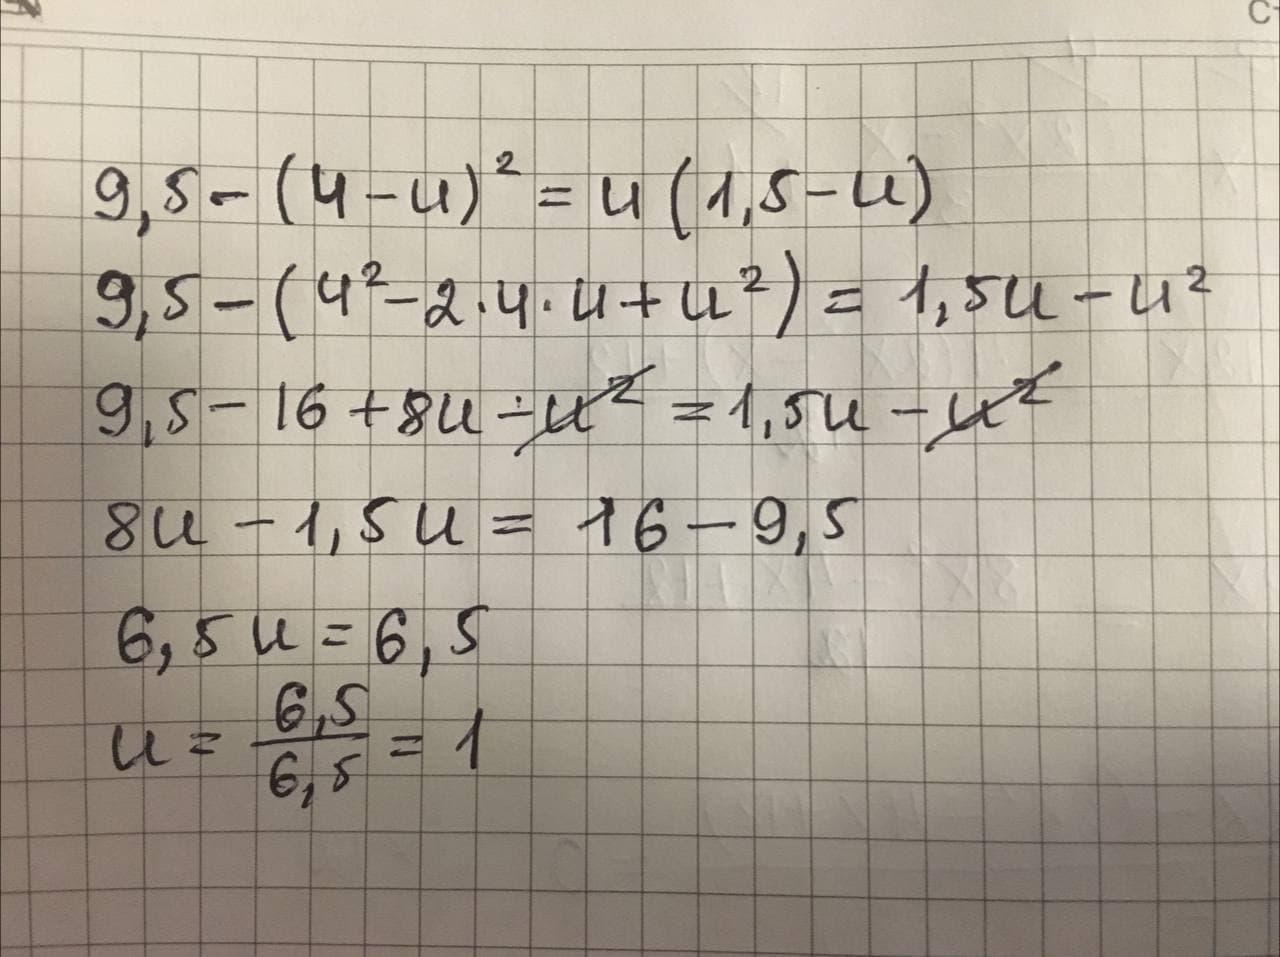 9,5 - (4 - u)² = u (1,5 - u)
9,5 - (4² - 2·4·u + u²) = 1,5u - u²
9,5 - 16 + 8u - u² = 1,5u - u²
8u - 1,5u = 16 - 9,5
6,5u = 6,5
u = 6,5/6,5 = 1